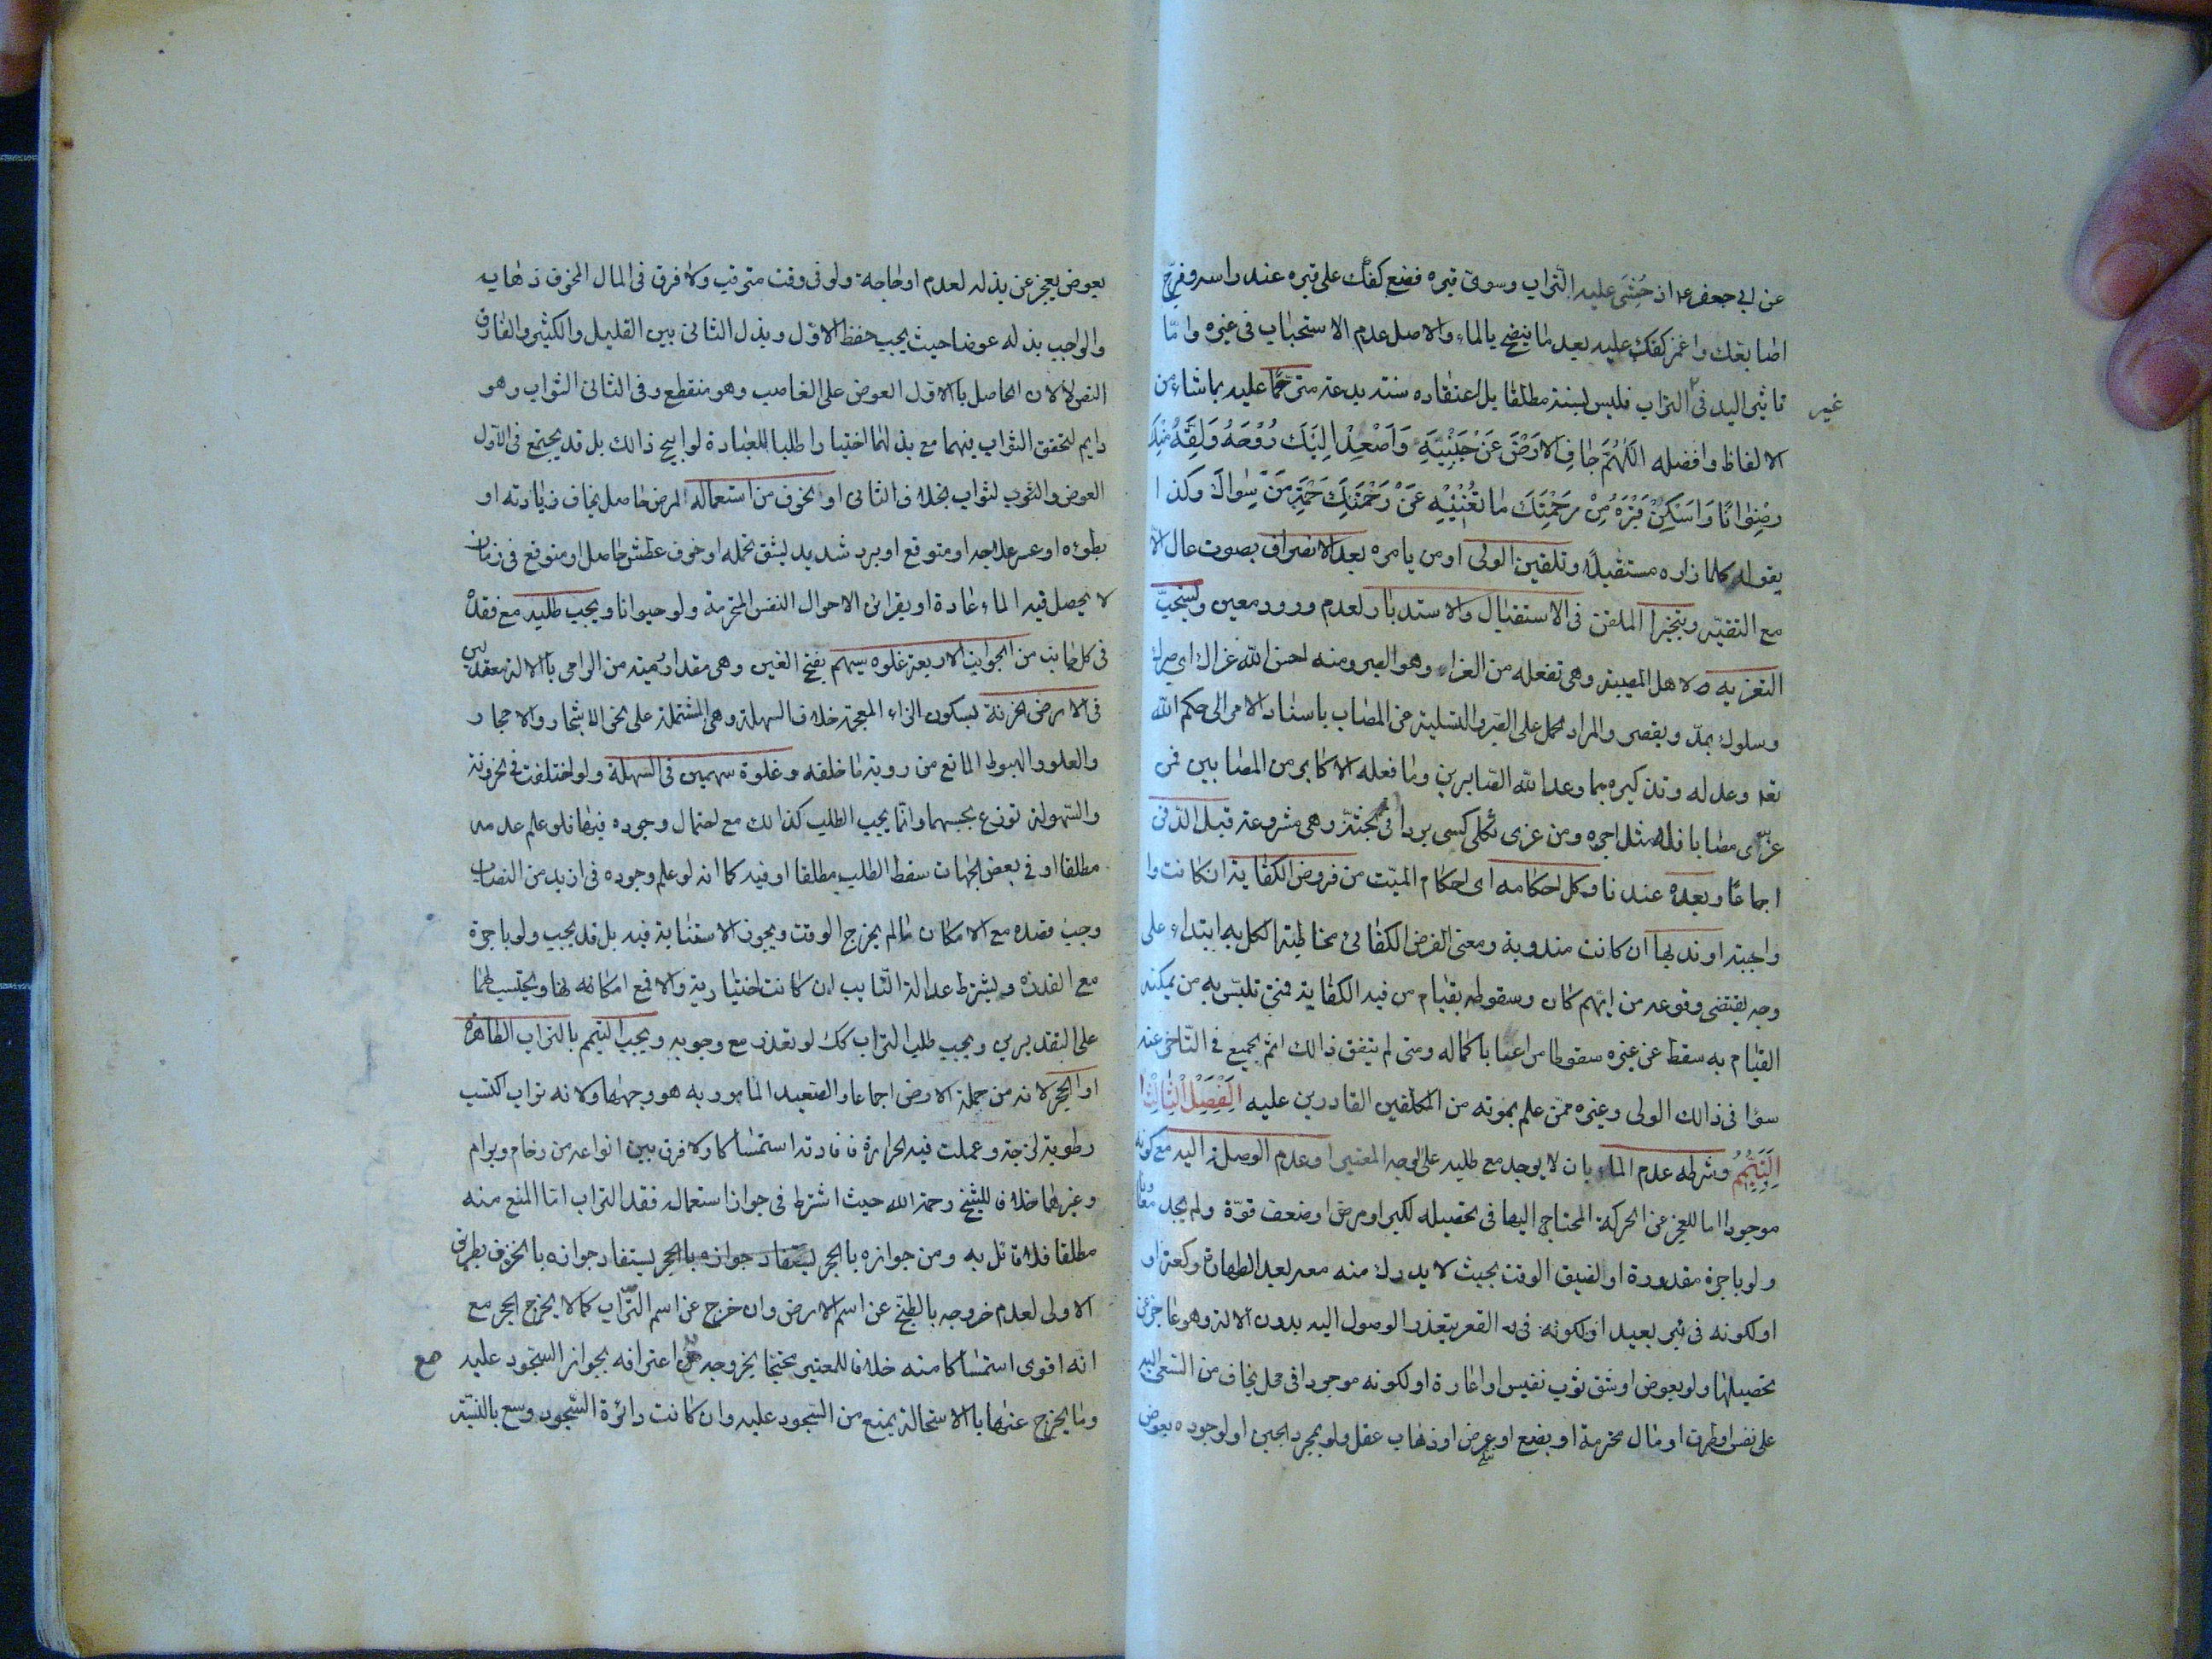 عن ابي جعفر ع اذ حُثِىَ عليه التراب وسوى قبره فضع كفك على قبره عند راسه وفرّج
اصابعك واغمز كفك عليه بعد ما ينضح بالماء والاصل عدم الاستحباب فى غيره وامّا
تاثير اليد فى التراب فليس بسنة مطلقا بل اعتقاده سنة بدعة مترحّما عليه بما شاء من
غير
الالفاظ وافضله اَللّٰهُمَّ جَافِ الاَرْضَ عَنْ جَنْبَيْهِ وَاَصْعِدْ اِلَيْكَ رُوْحَهُ وَلَقِّهُ مِنْكَ
رِضْوَانًا وَاَسْكِنْ قَبْرَهُ مِنْ رَحْمَتِكَ مَا تُغْنِيْهِ عَنْ رَحْمَةِ مَنْ سِوَاكَ وكذا
يقوله كلما زاره مستقبلاً وتلقين الولى او من يامره بعد الانصراف بصوت عال الا
مع التقيّه ويتخيرا الملقن فى الاستقبال والاستدبار لعدم ورود معين ويستحبّ
التعزيه لاهل المصيبة وهى تفعله من العزاء وهو الصبر ومنه احسن اللّه عزاك اى صبرك
وسلوك يمدّ ويقصر والمراد الحمل على الصبر والتسلية عن المصاب باسناد الامر الى حكم اللّه
تعا وعدله وتذكيره بما وعد اللّه الصابرين وما فعله الاكابر من المصابين فمن
عزّى مصابا فله مثل اجره ومن عزى ثكلى كسى بردا فى الجنّة وهى مشروعة قبل الدفن
اجماعًا وبعده عندنا وكل احكامه اى احكام الميّت من فروض الكفاية ان كانت وا
واجبة او ندبها ان كانت مندوبة ومعنى الفرض الكفائى مخاطبة الكل به ابتداء على
وجه يقتضى وقوعه من ايّهم كان وسقوطه بقيام من فيه الكفاية فمتى تلبّس به من يمكنه
القيام به سقط عن غيره سقوطا مراعيا باكماله ومتى لم يتفق ذالك اثم الجميع فى التّاخر عنه
سوا فى ذالك الولى وغيره ممّن علم بموته من المكلّفين القادرين عليه اَلْفَصْلُ الثَّالِثُ
اَلتَّيَمُّمُ وشرطه عدم الماء بان لا يوجد مع طلبه على الوجه المعتبر او عدم الوصلة اليه مع كونه
موجودا اما للعجز عن الحركة المحتاج اليها فى تحصيله لكبر او مرض او ضعف قوّة ولم يجد معاونا
ولو باجرة مقدورة او لضيق الوقت بحيث لا يدرك منه معه بعد الطهارة ركعة او
او لكونه فى بئر بعيد القعر يتعذر الوصول اليه بدون الالة وهو عاجز عن
تحصيلها ولو بعوض او شق ثوب نفيس او اعارة او لكونه موجودا فى محل يخاف من السّعى اليه
على نفس او طرف او مال محترمة او بضع او عرض او ذهاب عقل ولو بمجرد الجبن او لوجوده بعوض
يعوض يعجز عن بذله لعدم او حاجة ولو فى وقت مترقب ولا فرق فى المال المخوف ذهابه
والواجب بذله عوضا حيث يجب حفظ الاوّل وبذل الثانى بين القليل والكثير والفارق
النص لا لان الحاصل بالاوّل العوض على الغاصب وهو منقطع وفى الثانى الثواب وهو
دايم لتحقق الثواب فيهما مع بذلهما اختيارا طلبا للعبادة لو ابيح ذالك بل قد يجتمع فى الاول
العوض والثوب لثواب بخلاف الثانى او الخوف من استعماله المرض حاصل يخاف زيادته او
بطوئه او عسر علاجه او متوقع او برد شديد يشق تحمله او خوف عطش حاصل او متوقع فى زمان
لا يحصل فيه الماء عادة او بقراين الاحوال النفس المحترمة ولو حيوانا ويجب طلبه مع فقده
فى كل جانب من الجوانب الاربعة غلوه بسهم بفتح الغين وهى مقدار رمية من الرامى بالالة معتدلين
فى الارض الحزنة بسكون الزاء المعجمة خلاف السهلة وهى المشتملة على نحو الاشجار والاحجار
والعلو والهبوط المانع من روية ما خلفه وغلوة سهمين فى السهلة ولو اختلفت فى الحزونة
والسّهولة توزع بحسبهما وانّما يجب الطلب كذالك مع احتمال وجوده فيها فلو علم عدمه
مطلقا او فى بعض الجهات سقط الطلب مطلقا او فيه كما انه لو علم وجوده فى ازيد من النصاب
وجب قصده مع الامكان مالم يخرج الوقت ويجوز الاستنابة فيه بل قد يجب ولو باجرة
مع القدرة ويشترط عدالة النّايب ان كانت اختيارية والا فمع امكانه لها ويحتسب لهما
على التقديرين ويجب طلب التراب كك لو تعذر مع وجوبه ويجب التيمم بالتراب الطاهره
او الحجر لانه من جملة الارض اجماعا والصعيد المامور به هو وجهها ولانه تراب اكتسب
رطوبة لزجة وعملت فيه الحرارة فافادته استمساكا ولا فرق بين انواعه من رخام وبرام
وغيرهما خلافا للشيخ رحمه اللّه حيث اشترط فى جواز استعماله فقد التراب اما المنع منه
مطلقا فلا قائل به ومن جوازه بالحجر يستفاد جوازه بالحجر يستفاد جوازه بالخزف بطريق
الاولى لعدم خروجه بالطبخ عن اسم الارض وان خرج عن اسم التّراب كما لا يخرج الحجر مع
انه اقوى استمساكا منه خلافا للمعتبر محتجا بخروجه اعترافه بجواز السّجود عليه
مع
وما يخرج عنها بالاستحالة يمنع من السّجود عليه وان كانت دائرة السّجود وسع بالنسبة